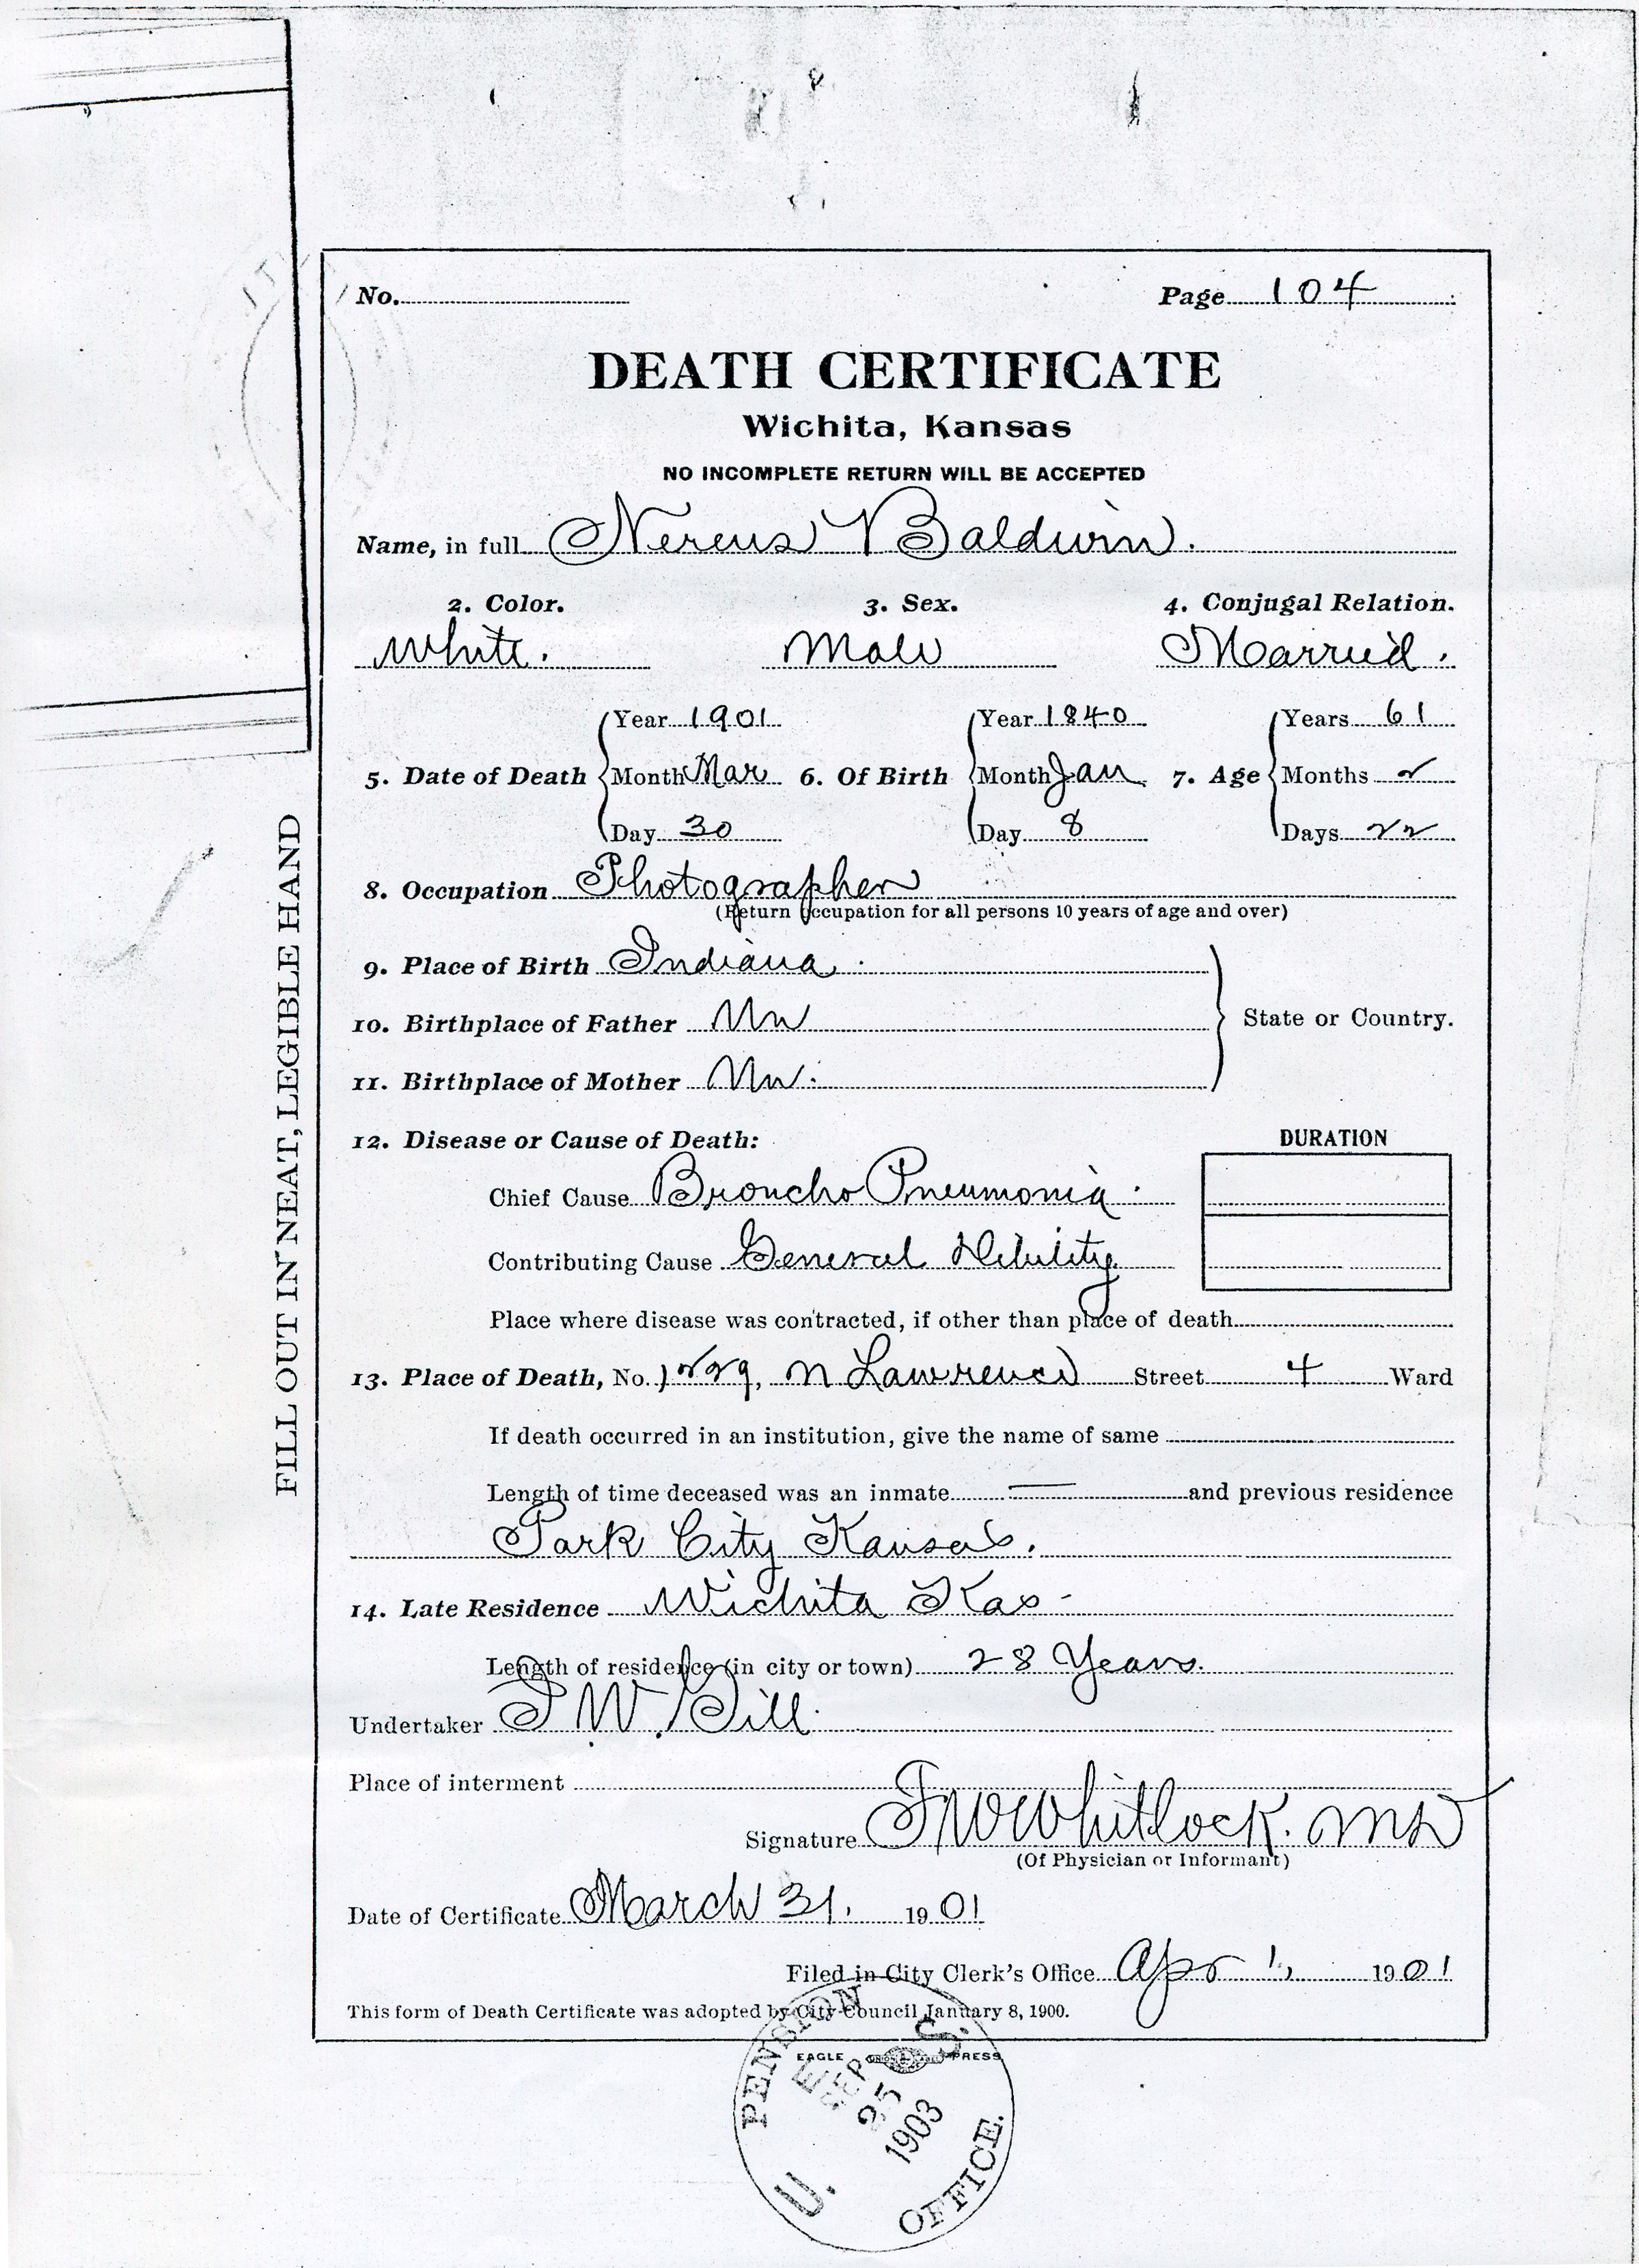 No. Page 104
DEATH CERTIFICATE
Wichita, Kansas
NO INCOMPLETE RETURN WILL BE ACCEPTED
Name, in full Nereus Baldwin.
2. Color. 3. Sex. 4. Conjugal Relation.
White. Male Married.
Year 1901 Year 1840 Years 61
5. Date of Death Month Mar 6. Of Birth Month Jan 7. Age Months 2
Day 30 Day 8 Days 22
8. Occupation Photographer
(Return occupation for all persons 10 years of age and over)
9. Place of Birth Indiana.
10. Birthplace of Father Un State or Country.
11. Birthplace of Mother Un.
12. Disease or Cause of Death: DURATION
Chief Cause Broncho Pneumonia.
Contributing Cause General Debility
Place where disease was contracted, if other than place of death
13. Place of Death, No. 1229, N Lawrence Street 4 Ward
If death occurred in an institution, give the name of same
Length of time deceased was an inmate — and previous residence
Park City Kansas.
14. Late Residence Wichita Kas -
Length of residence (in city or town) 28 Years.
Undertaker W. Gill.
Place of interment
Signature Whitlock. MD
(Of Physician or Informant)
Date of Certificate March 31, 1901
Filed in City Clerk's Office Apr 1, 1901
This form of Death Certificate was adopted by City Council January 8, 1900.
EAGLE PRESS
FILL OUT IN NEAT, LEGIBLE HAND
U. S. PENSION OFFICE.
SEP 25 1903